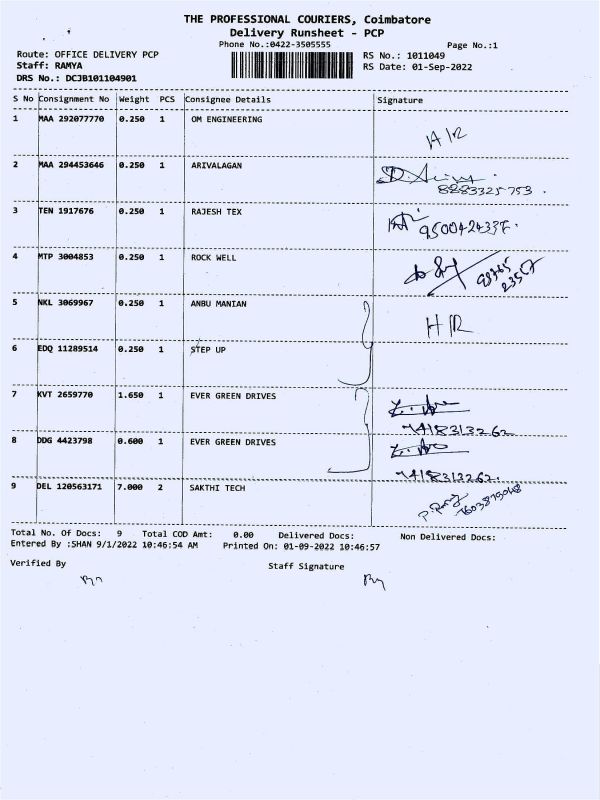 THE PROFESSIONAL COURIERS, Coimbatore
Delivery Runsheet - PCP
Phone No.:0422-3505555 Page No.:1
Route: OFFICE DELIVERY PCP RS No.: 1011049
Staff: RAMYA RS Date: 01-Sep-2022
DRS No.: DCJB101104901
S No Consignment No Weight PCS Consignee Details Signature
1 MAA 292077770 0.250 1 OM ENGINEERING H/R
2 MAA 294453646 0.250 1 ARIVALAGAN
8883325753.
3 TEN 1917676 0.250 1 RAJESH TEX 9500424337.
4 MTP 3004853 0.250 1 ROCK WELL 98765
23567
5 NKL 3069967 0.250 1 ANBU MANIAN H/R
6 EDQ 11289514 0.250 1 STEP UP
7 KVT 2659770 1.650 1 EVER GREEN DRIVES
7418313262
8 DDG 4423798 0.600 1 EVER GREEN DRIVES
7418313262.
9 DEL 120563171 7.000 2 SAKTHI TECH
Total No. Of Docs: 9 Total COD Amt: 0.00 Delivered Docs: Non Delivered Docs:
Entered By :SHAN 9/1/2022 10:46:54 AM Printed On: 01-09-2022 10:46:57
Verified By Staff Signature